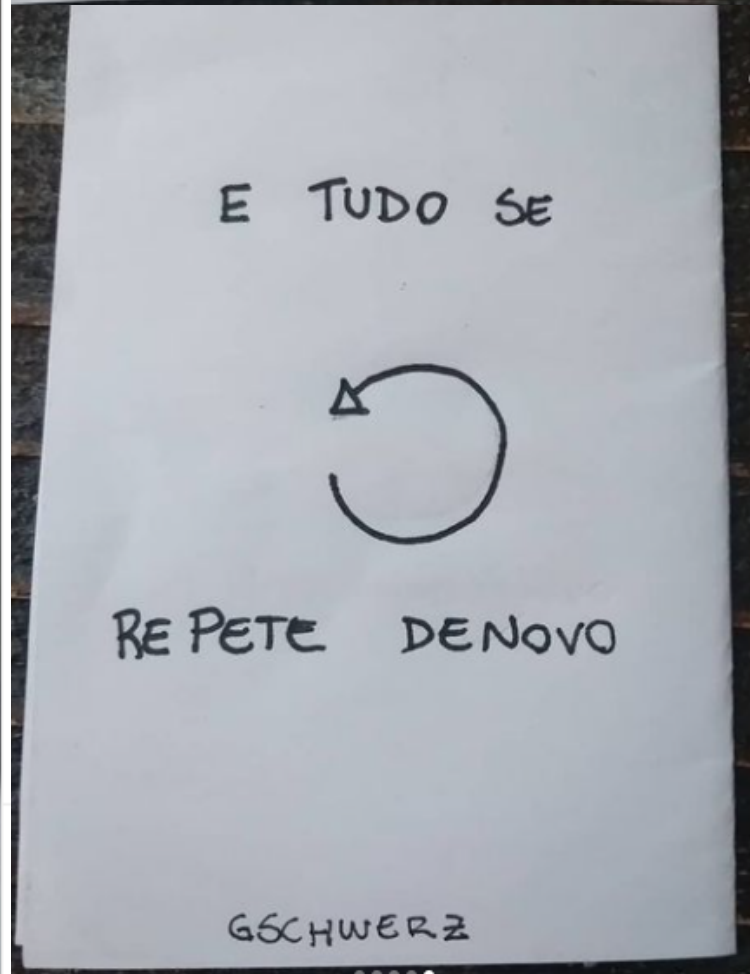 E TUDO SE
REPETE DENOVO
GSCHWERZ